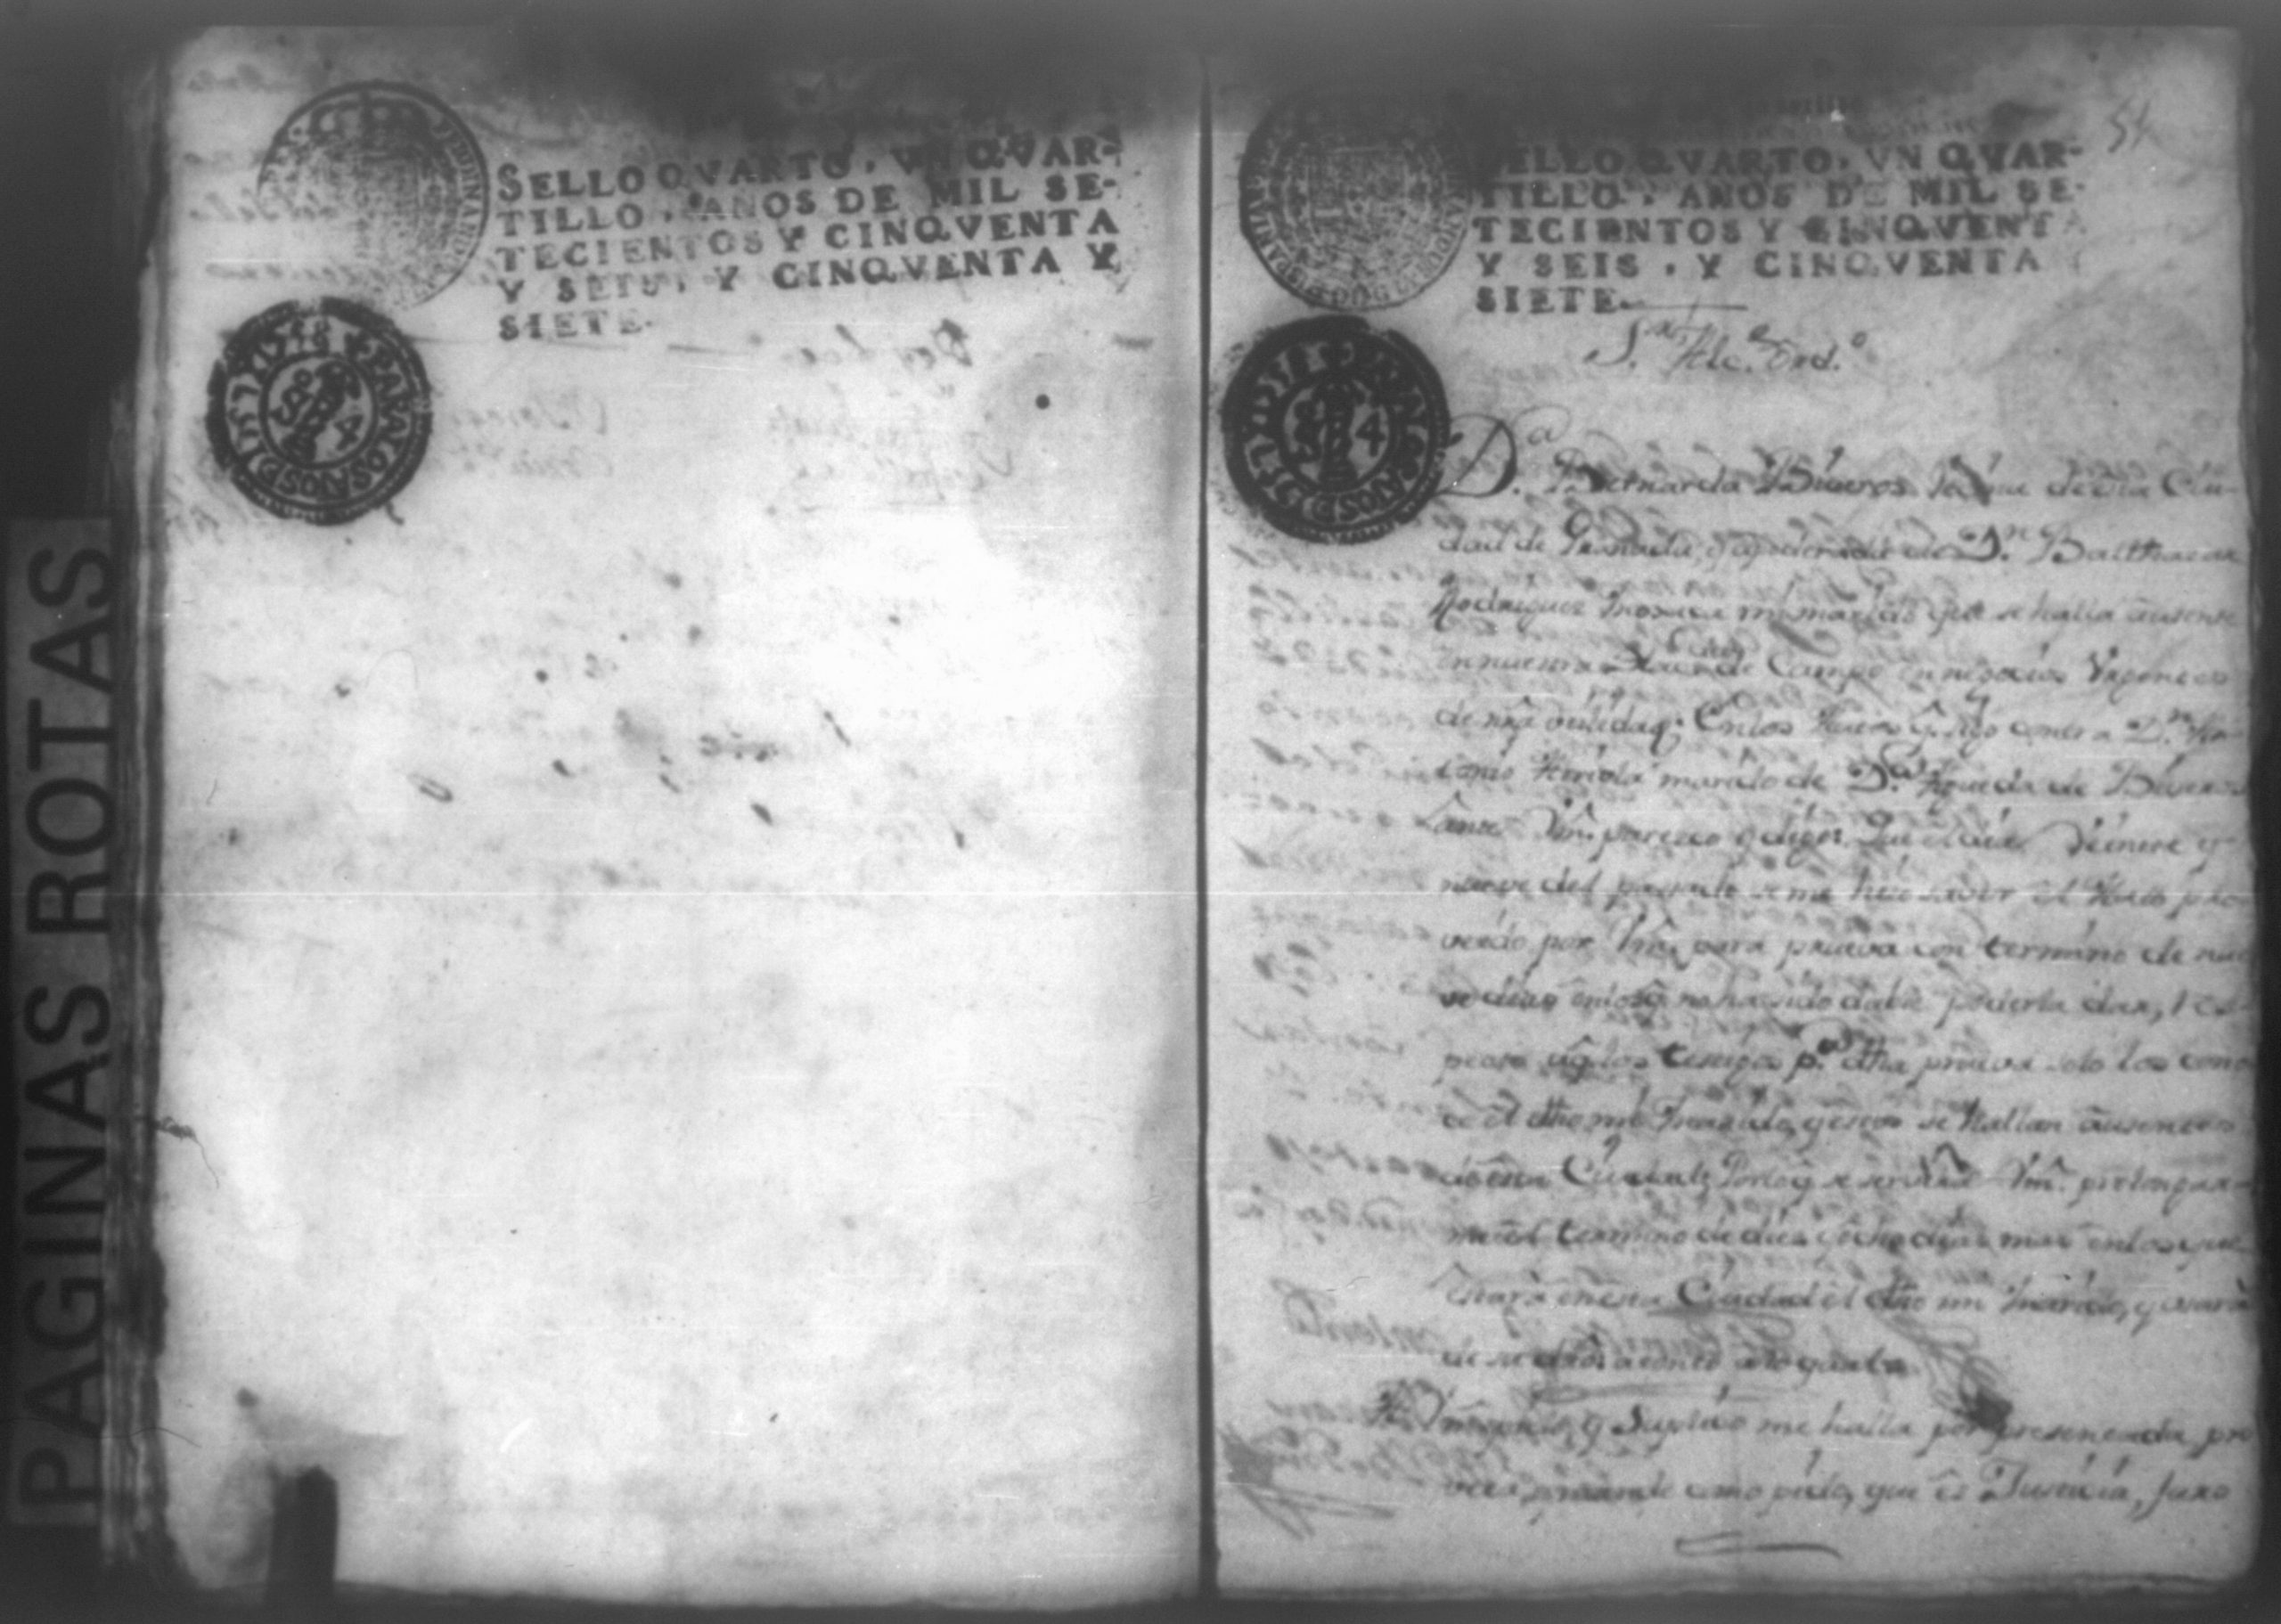 PAGINAS ROTAS
SELLO QVARTO, VN QVAR-
TILLO, AÑOS DE MIL SE-
TECIENTOS Y CINQVENTA
Y SEIS, Y CINQVENTA Y
SIETE.
54
SELLO QVARTO, VN QVAR-
TILLO, AÑOS DE MIL SE-
TECIENTOS Y CINQVENTA
Y SEIS, Y CINQVENTA
SIETE.
S.or Alc.e Ord.o
D.a Bernarda Biveros Vezina de esta Ciu-
dad de Granada, y apoderada de D.n Balthasar
Rodriguez mi marido que se halla ausente
en nuestra de Campo en negocios Urgentes
de nra utilidad; En los Autos q. sigo contra D.n An-
tonio marido de D.a Agueda de Biveros
ante Vm. paresco y digo: Que el dia Veinte y
nueve del pasado se me hizo saver el Auto pro-
veido por Vm. para prueva con termino de nue
ve dias en los q. no ha sido dable poderla dar, res-
pecto a q. los testigos p.a dha prueva solo los cono
ce el dho mi Marido, y estos se hallan ausentes
de esta Ciudad; Por lo q. se servirá Vm. prolongar
me el termino de diez y ocho dias mas en los que
estará en esta Ciudad el dho mi Marido, y usará
de su dro.
A Vm. pido, y Suplico me halla por presentada, pro
vea, y mande como pido, que es Justicia, Juro